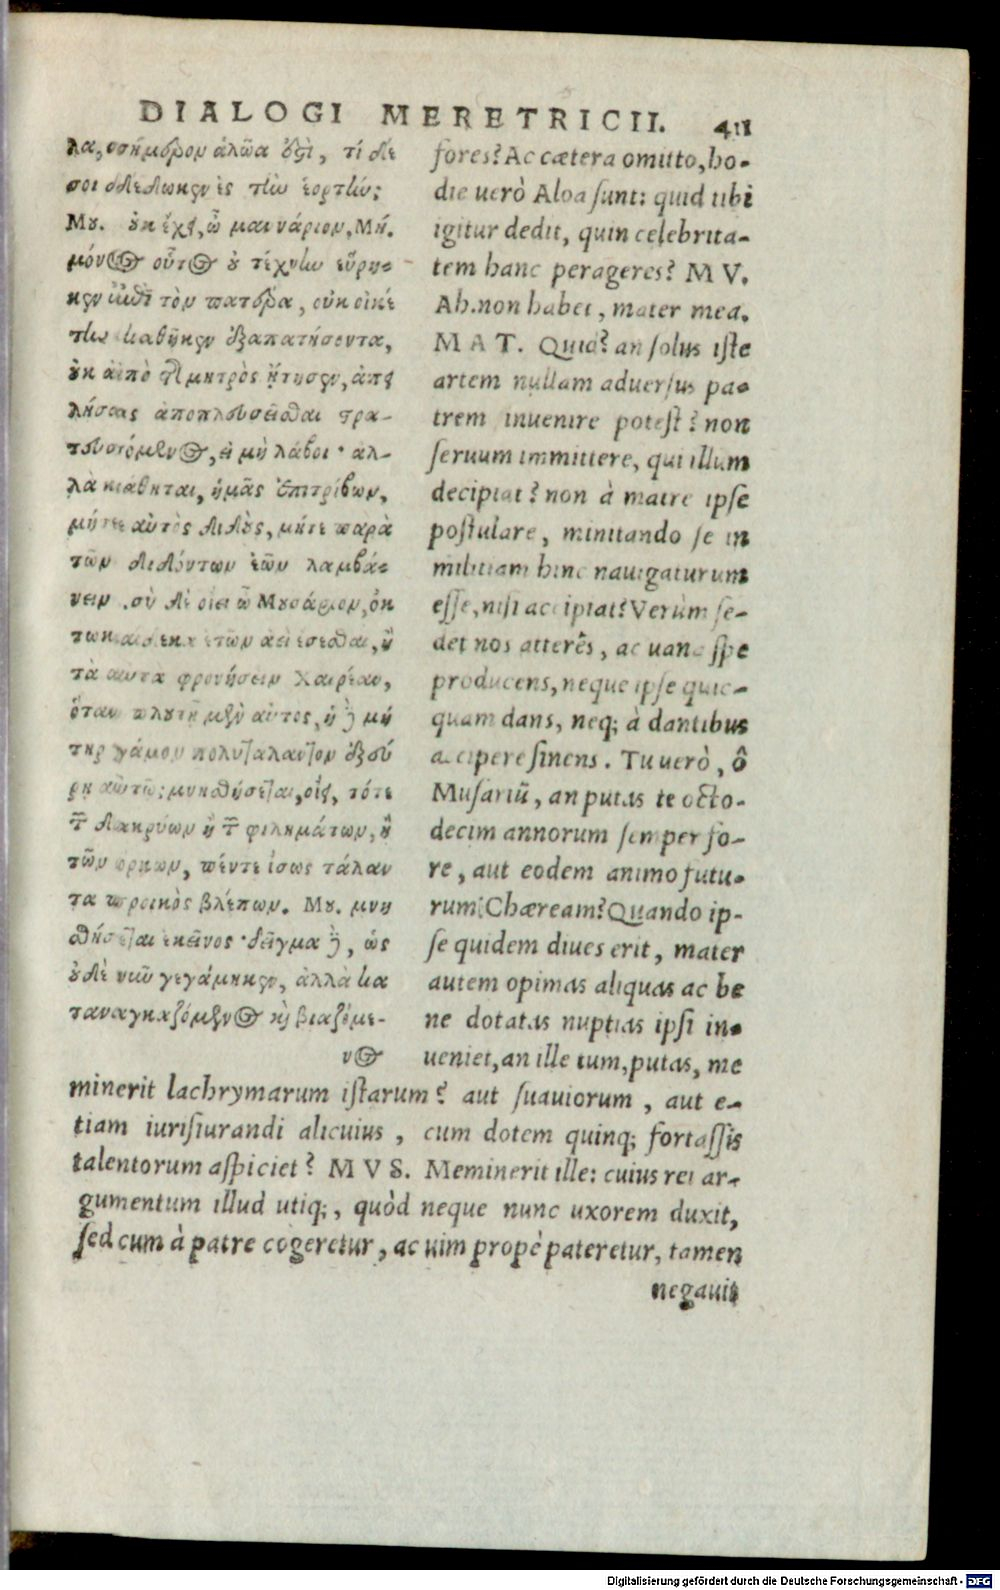 DIALOGI MERETRICII. 411
λα, σήμερον ἁλῶα ἐστι, τί δε
σοι δέδωκεν ἐς τὴν ἑορτήν;
Μυ. οὐκ ἔχει, ὦ μαννάριον. Μή.
μόνος οὗτος οὐ τέχνην εὕρη-
κεν ἐπὶ τὸν πατέρα, οὐκ οἰκέ
την καθῆκεν ἐξαπατήσοντα,
οὐκ ἀπὸ τῆς μητρὸς ᾔτησεν, ἀπει
λήσας ἀποπλευσεῖσθαι στρα-
τευσόμενος, εἰ μὴ λάβοι· ἀλ-
λὰ κάθηται, ἡμᾶς ἐπιτρίβων,
μήτε αὐτὸς διδοὺς, μήτε παρὰ
τῶν διδόντων ἐῶν λαμβά-
νειν. σὺ δὲ οἴει ὦ Μουσάριον, ὀκ
τωκαίδεκα ἐτῶν ἀεὶ ἔσεσθαι, ἢ
τὰ αὐτὰ φρονήσειν Χαιρέαν,
ὅταν πλουτῇ μὲν αὐτος, ἡ δὲ μή
τηρ γάμον πολυτάλαντον ἐξεύ
ρη αὐτῷ; μνησθήσεται, οἴει, τότε
τῶν δακρύων ἢ τῶν φιλημάτων, ἢ
τῶν ὅρκων, πέντε ἴσως τάλαν
τα προικὸς βλέπων. Μυ. μνη
σθήσεται ἐκεῖνος· δεῖγμα δὲ, ὡς
οὐδὲ νῦν γεγάμηκεν, ἀλλὰ κα
ταναγκαζόμενος καὶ βιαζόμε-
νος
fores? Ac cætera omitto, ho-
die uerò Aloa sunt: quid tibi
igitur dedit, quin celebrita-
tem hanc perageres? MV.
Ah. non habet, mater mea.
MAT. Quid? an solus iste
artem nullam aduersus pa-
trem inuenire potest? non
seruum immittere, qui illum
decipiat? non à matre ipse
postulare, minitando se in
militiam hinc nauigaturum
esse, nisi accipiat? Verùm se-
det nos atterēs, ac uana spe
producens, neque ipse quic-
quam dans, neq; à dantibus
accipere sinens. Tu uerò, ô
Musariũ, an putas te octo-
decim annorum semper fo-
re, aut eodem animo futu-
rum Chæream? Quando ip-
se quidem diues erit, mater
autem opimas aliquas ac be
ne dotatas nuptias ipsi in-
ueniet, an ille tum, putas, me
minerit lachrymarum istarum? aut suauiorum, aut e-
tiam iurisiurandi alicuius, cum dotem quinq; fortassis
talentorum aspiciet? MVS. Meminerit ille: cuius rei ar-
gumentum illud utiq;, quòd neque nunc uxorem duxit,
sed cum à patre cogeretur, ac uim propè pateretur, tamen
negauit
Digitalisierung gefördert durch die Deutsche Forschungsgemeinschaft - DFG